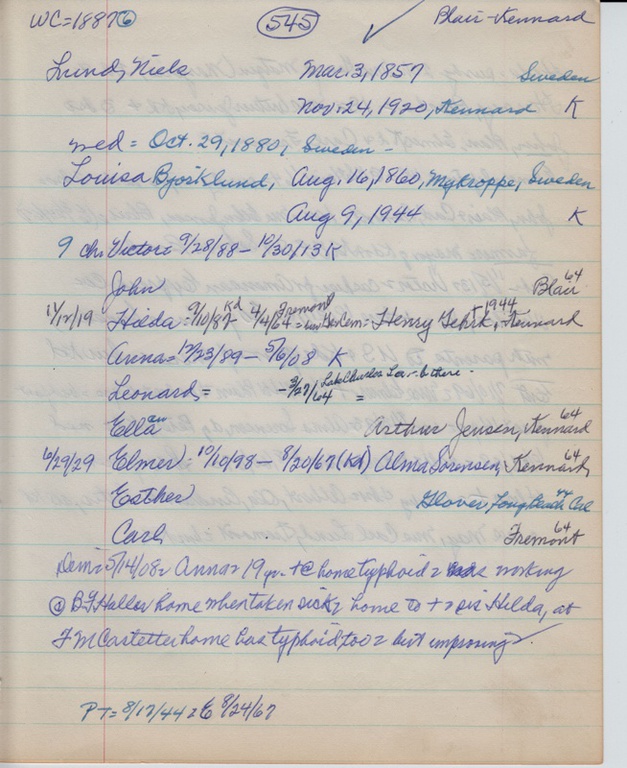 WC=1887⑥ 545 ✓ Blair-Kennard
Lund, Niels Mar. 3, 1857 Sweden
Nov. 24, 1920, Kennard K
med= Oct. 29, 1880, Sweden-
Louisa Bjorklund, Aug. 16, 1860, Sweden
Aug 9, 1944 K
9 ch: Victor= 9/28/88- 10/30/13 K
John Blair 64
11/12/19 Hilda= 9/10/87 Kd 4/4/64= Fremont Henry Gehrk, +1944 Kennard
Anna= 12/23/89- 5/6/08 K
Leonard= -3/27/64 Lake Charles La.- b there- =
Ella Arthur Jensen, Kennard 64
6/29/29 Elmer= 10/10/98- 8/20/67 (Kd) Alma Sorensen, Kennard 64
Esther Glover, Long Beach Cal 44
Carl Fremont 64
Dem= 5/14/08= Anna= 19 yr. + @ home typhoid = was working
@ B.F. Haller home when taken sick = home to + = sis Hilda, at
F M Castetter home has typhoid too = but improving= ✓
PT= 8/17/44 = E 8/24/67